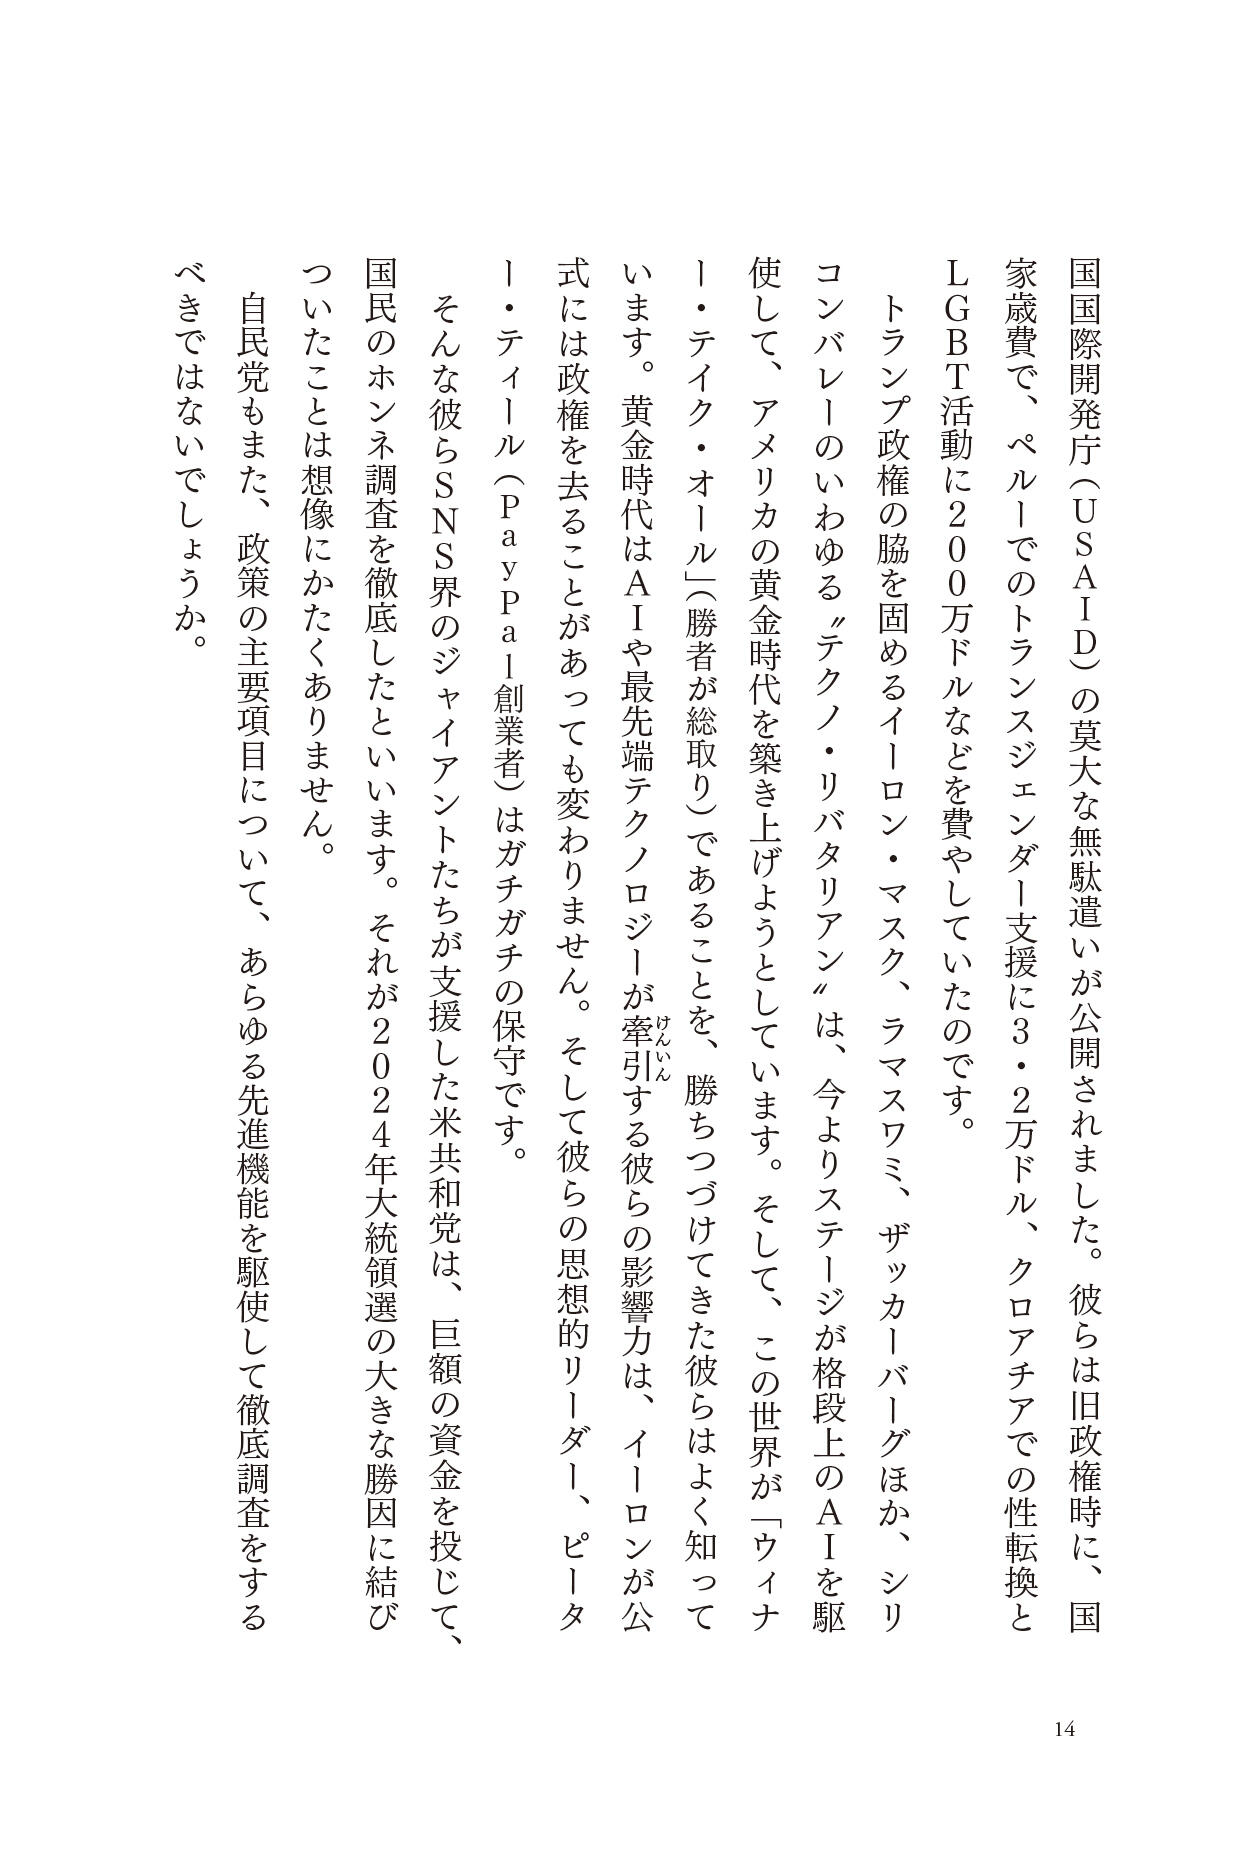 国国際開発庁（ＵＳＡＩＤ）の莫大な無駄遣いが公開されました。彼らは旧政権時に、国
家歳費で、ペルーでのトランスジェンダー支援に３・２万ドル、クロアチアでの性転換と
ＬＧＢＴ活動に２００万ドルなどを費やしていたのです。
　トランプ政権の脇を固めるイーロン・マスク、ラマスワミ、ザッカーバーグほか、シリ
コンバレーのいわゆる〝テクノ・リバタリアン〟は、今よりステージが格段上のＡＩを駆
使して、アメリカの黄金時代を築き上げようとしています。そして、この世界が「ウィナ
ー・テイク・オール」（勝者が総取り）であることを、勝ちつづけてきた彼らはよく知って
います。黄金時代はＡＩや最先端テクノロジーが牽引けんいんする彼らの影響力は、イーロンが公
式には政権を去ることがあっても変わりません。そして彼らの思想的リーダー、ピータ
ー・ティール（ＰａｙＰａｌ創業者）はガチガチの保守です。
　そんな彼らＳＮＳ界のジャイアントたちが支援した米共和党は、巨額の資金を投じて、
国民のホンネ調査を徹底したといいます。それが２０２４年大統領選の大きな勝因に結び
ついたことは想像にかたくありません。
　自民党もまた、政策の主要項目について、あらゆる先進機能を駆使して徹底調査をする
べきではないでしょうか。
14